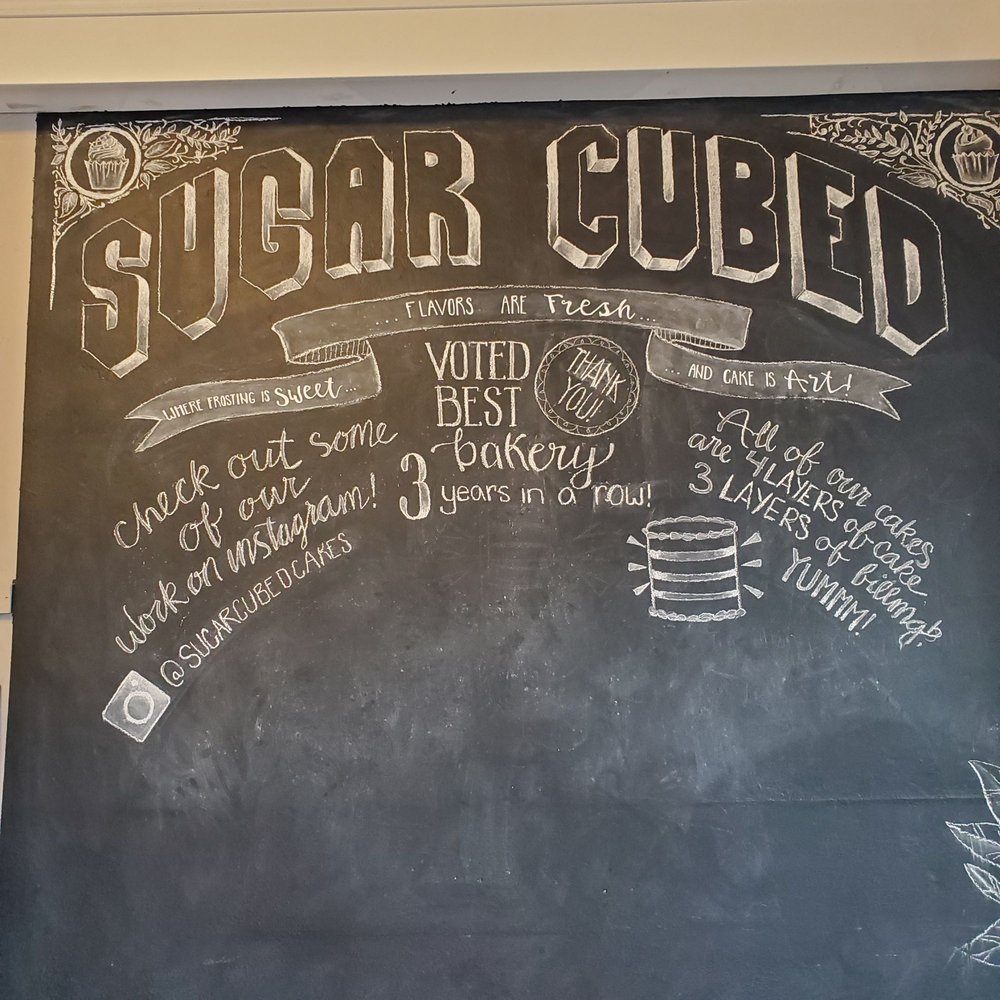 SUGAR CUBED
WHERE FROSTING IS Sweet...
...FLAVORS ARE Fresh...
...AND CAKE IS Art!
VOTED
BEST
bakery
3 years in a row!
THANK
YOU!
check out some
of our
work on instagram!
@SUGARCUBEDCAKES
All of our cakes
are 4 LAYERS of cake
3 LAYERS of filling?
YUMMM!